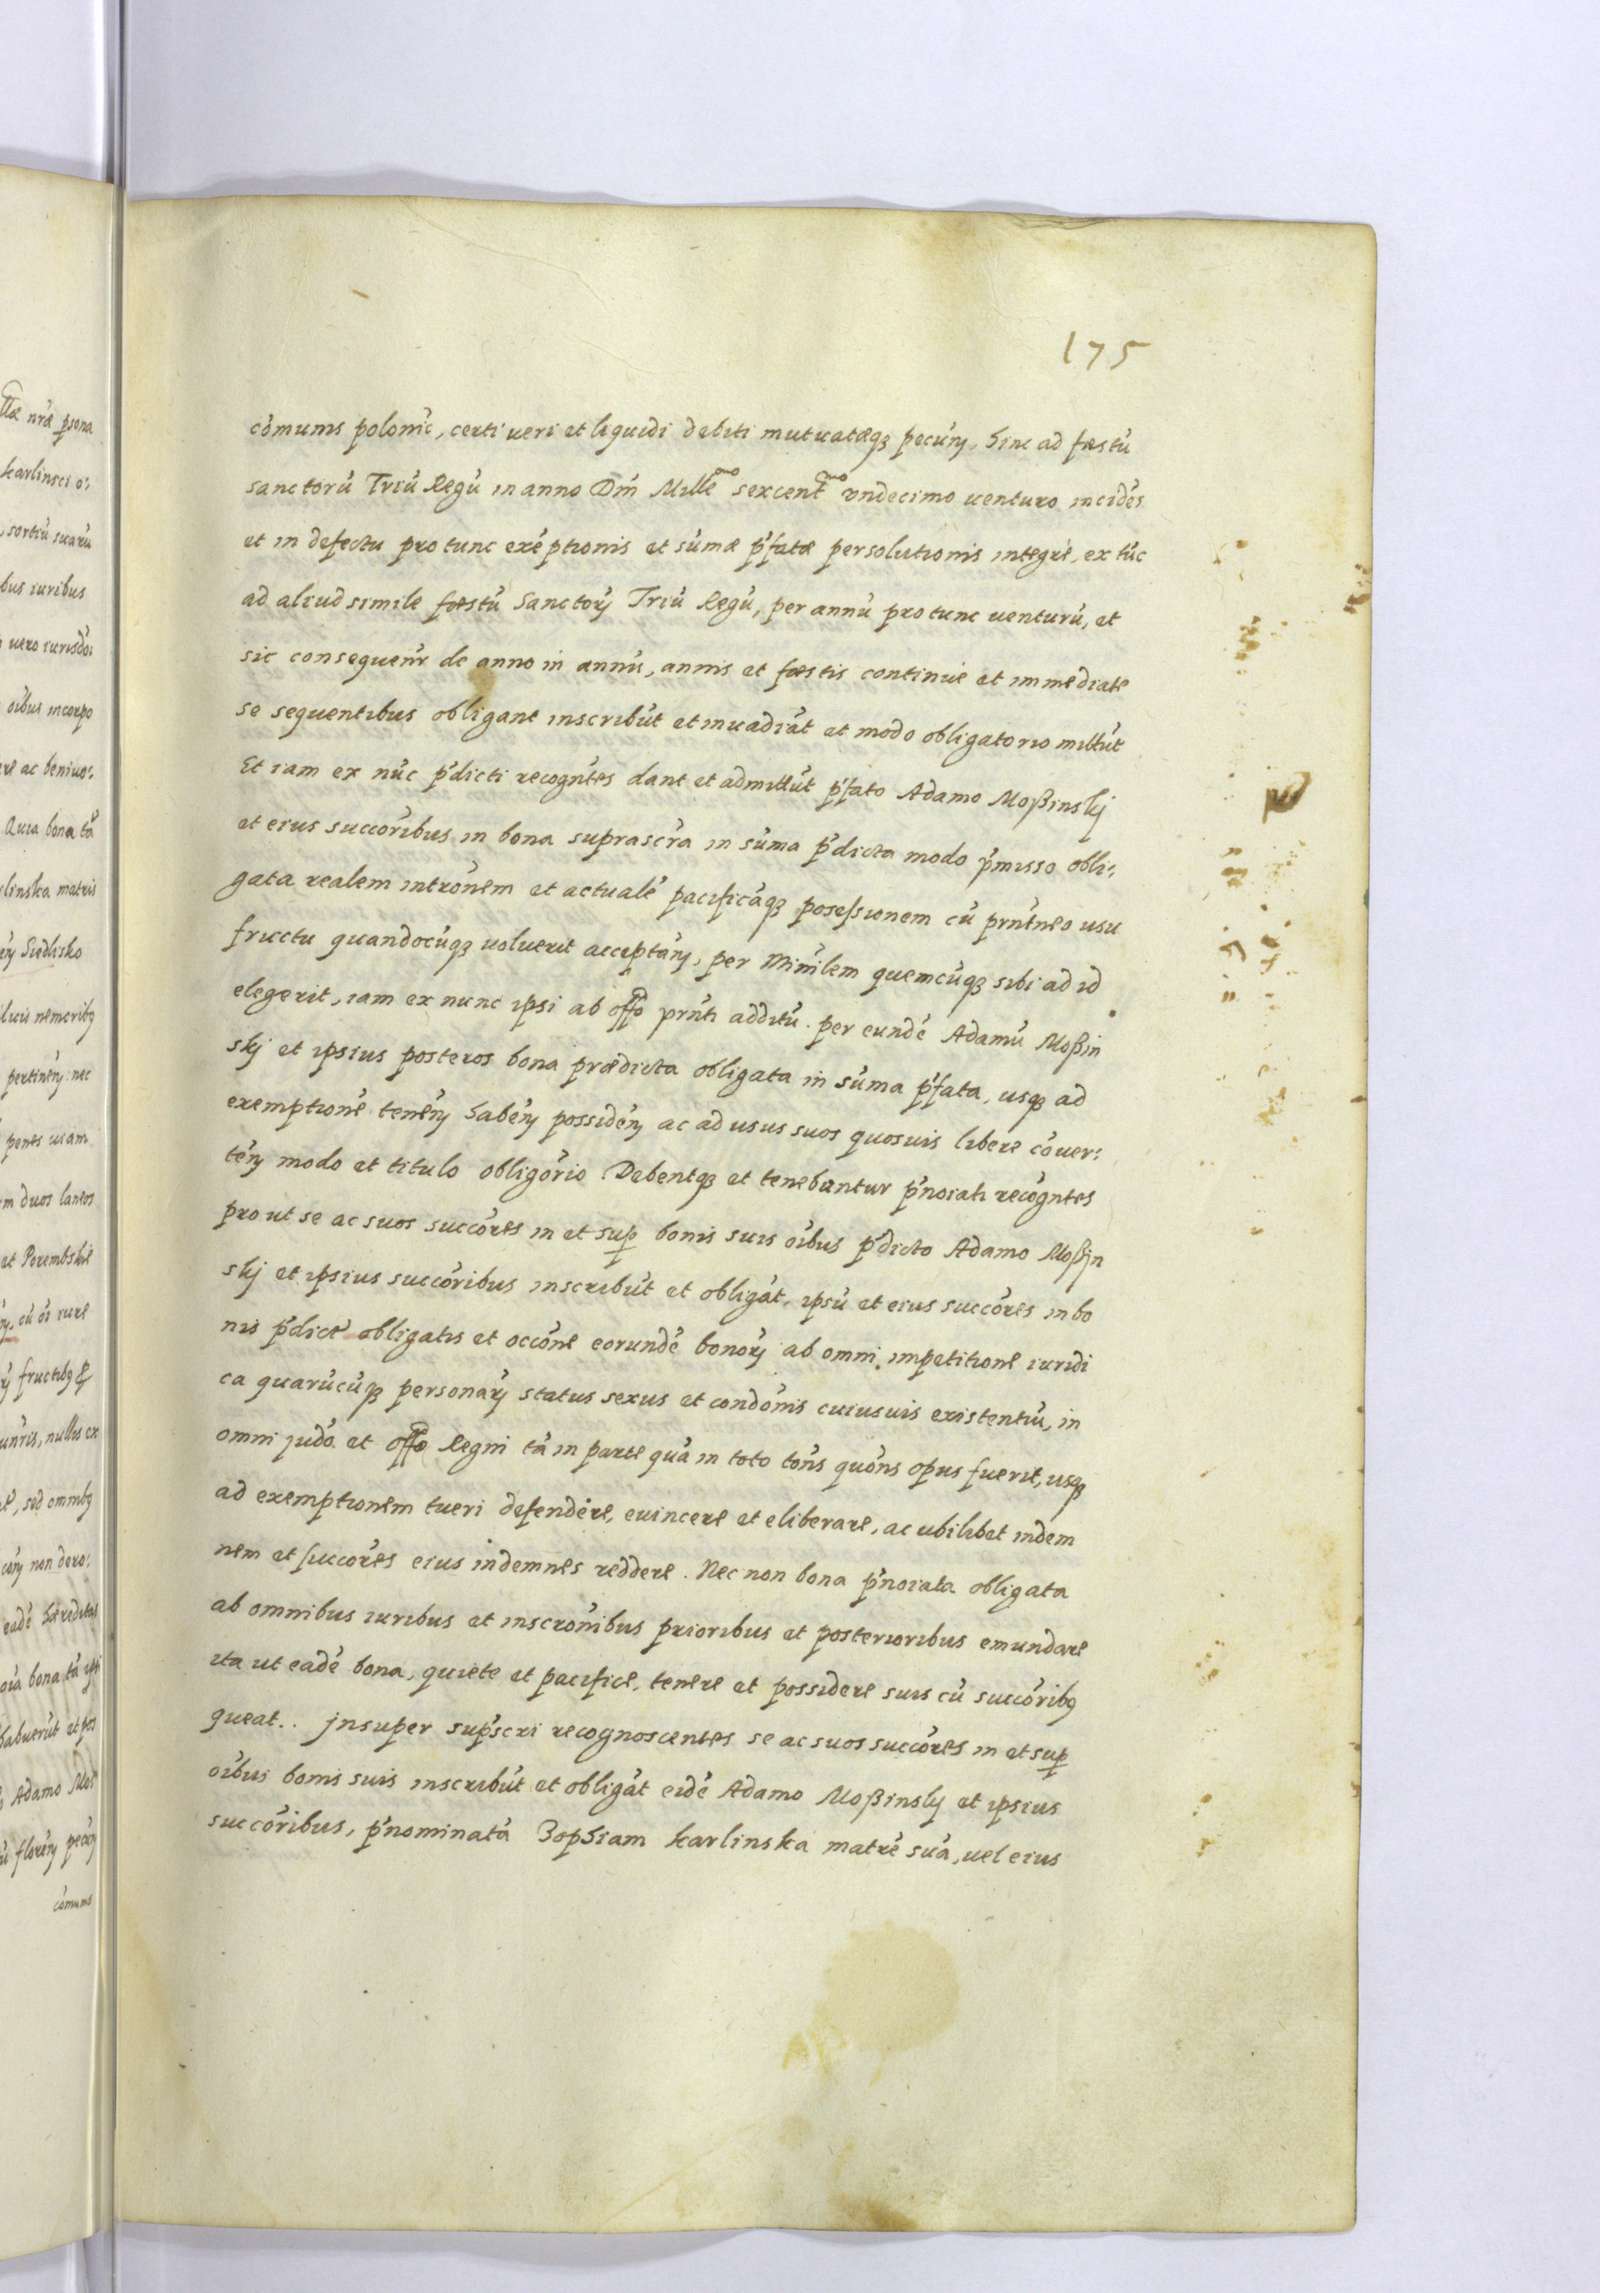 175
cômunis polonic̃, certi ueri et liquidi debiti mutuatæqʒ pecũꝝ, hinc ad fæstũ
sanctorũ Triũ Regũ in anno Dñi Mill̃mo sexcent̃mo vndecimo venturo incidẽs
et in defectu pro tunc exẽptionis et sũmæ p̃fatæ persolutionis integrè, ex tũc
ad aliud simile fæstũ Sanctorꝝ Triũ Regũ, per annũ pro tunc venturũ, et
sic consequeñr de anno in annũ, annis et fæstis continue et immediate
se sequentibus obligant inscribũt et inuadiãt et modo obligatorio mittũt
Et iam ex nũc p̃dicti recogñtes dant et admittũt p̃fato Adamo Moßinskj
et eius succõribus in bona suprascr̃a in sũma p̃dicta modo p̃misso obli:
gata realem intrõnem et actualẽ pacificãqʒ poseſsionem cũ prñtneo usu
fructu quandocũqʒ voluerit acceptãꝝ, per Miñilem quemcũqʒ sibi ad id
elegerit, iam ex nunc ipsi ab off̃o prñti additũ. per eundẽ Adamũ Moßin
skj et ipsius posteros bona prædicta obligata in sũma p̃fata, usqʒ ad
exemptionẽ tenẽꝝ habẽꝝ possidẽꝝ ac ad usus suos quosuis libere cõuer:
tẽꝝ modo et titulo obligõrio Debentqʒ et tenebuntur p̃noiati recõgntes
pro ut se ac suos succõres in et suꝑ bonis suis oĩbus p̃dicto Adamo Moßin
skj et ipsius succõribus inscribũt et obligãt, ipsũ et eius succõres in bo
nis p̃dict̃ obligatis et occõne eorundẽ bonorꝝ ab omni impetitione iuridi
ca quarũcũqʒ personarꝝ status sexus et condõnis cuiusuis existentiũ, in
omni judõ et off̃o Regni tã in parte quã in toto tõns quõns opus fuerit, usqʒ
ad exemptionem tueri defendere, euincere et eliberare, ac ubilibet indem
nem et succõres eius indemnes reddere. Nec non bona p̃noiata obligata
ab omnibus iuribus et inscrõnibus prioribus et posterioribus emundare
ita ut eadẽ bona, quiete et pacifice, tenere et possidere suis cũ succõribꝰ
queat.. Jnsuper sup̃scri recognoscentes se ac suos succõres in et suꝑ
oĩbus bonis suis inscribũt et obligãt eidẽ Adamo Moßinskj et ipsius
succõribus, p̃nominatã Zophiam karlinska matrẽ suã, uel eius